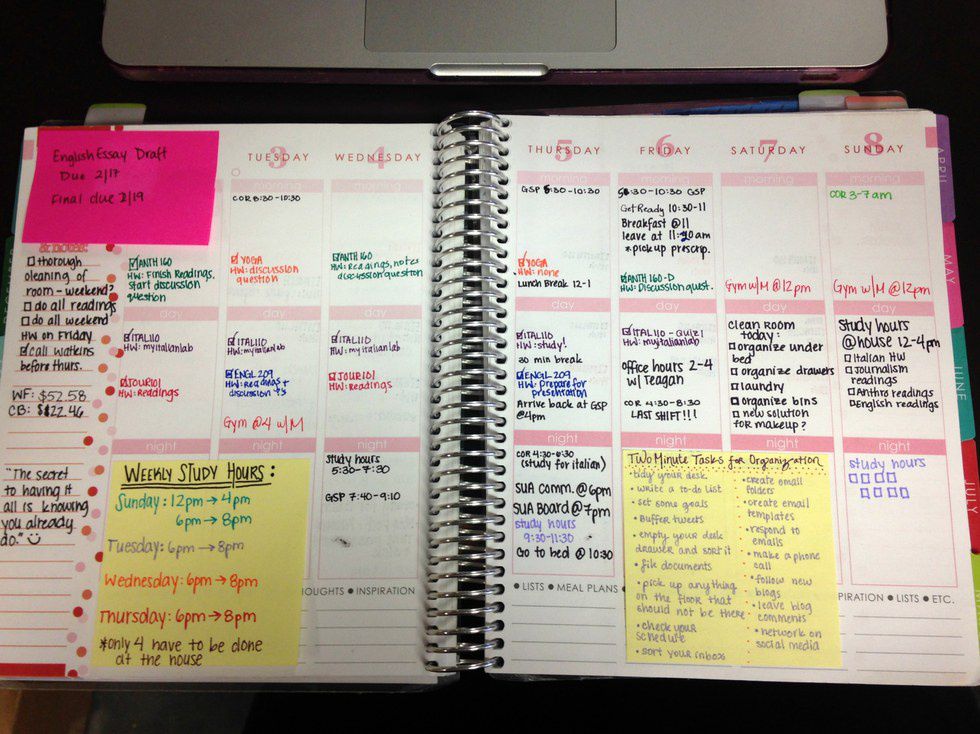 English Essay Draft
Due 2/17
Final due 2/19
thorough
cleaning of
room - weekend?
do all readings
do all weekend
HW on Friday
call Watkins
before thurs.
WF: $52.58
CB: $22.46
"The secret
to having it
all is knowing
you already
do."
ANTH 160
HW: Finish Readings,
start discussion
question
ITAL110
HW: myitalianlab
JOUR101
HW: Readings
WEEKLY STUDY HOURS:
Sunday: 12pm → 4pm
6pm → 8pm
Tuesday: 6pm → 8pm
Wednesday: 6pm → 8pm
Thursday: 6pm → 8pm
*only 4 have to be done
at the house
3
TUESDAY
morning
COR 8:30-10:30
YOGA
HW: discussion
question
day
ITAL110
HW: myitalianlab
ENGL 209
HW: Readings +
discussion
Gym @4 w/M
night
4
WEDNESDAY
morning
ANTH 160
HW: Readings, notes
discussion question
day
ITAL110
HW: myitalianlab
JOUR101
HW: Readings
night
Study hours
5:30-7:30
GSP 7:40-9:10
THOUGHTS • INSPIRATION
5
THURSDAY
morning
GSP 8:30-10:30
YOGA
HW: none
Lunch Break 12-1
day
ITAL110
HW: study!
30 min break
ENGL 209
HW: Prepare for
presentation
Arrive back at GSP
@4pm
night
COR 4:30-6:30
(study for italian)
SUA Comm. @6pm
SUA Board @7pm
study hours
9:30-11:30
Go to bed @ 10:30
• LISTS • MEAL PLANS •
6
FRIDAY
morning
:30-10:30 GSP
Get Ready 10:30-11
Breakfast @11
leave at 11:30am
*pickup prescrip.
ANTH 160-D
HW: Discussion quest.
day
ITAL110 - Quiz!
HW: myitalianlab
office hours 2-4
w/ reagan
COR 4:30-8:30
LAST SHIFT!!!
7
SATURDAY
morning
Gym w/M @12pm
day
clean room
today:
organize under
bed
organize drawers
laundry
organize bins
new solution
for makeup?
Two Minute Tasks for Organization
• tidy your desk
• write a to-do list
• set some goals
• Buffer tweets
• empty your desk
drawer and sort it
• file documents
• pick up anything
on the floor that
should not be there
• check your
schedule
• sort your inbox
• create email
folders
• create email
templates
• respond to
emails
• make a phone
call
• follow new
blogs
• leave blog
comments
• network on
social media
8
SUNDAY
morning
COR 3-7am
Gym w/M @12pm
day
study hours
@house 12-4pm
Italian HW
Journalism
readings
Anthro readings
English readings
night
study hours
INSPIRATION • LISTS • ETC.
APRIL
MAY
JUNE
JULY